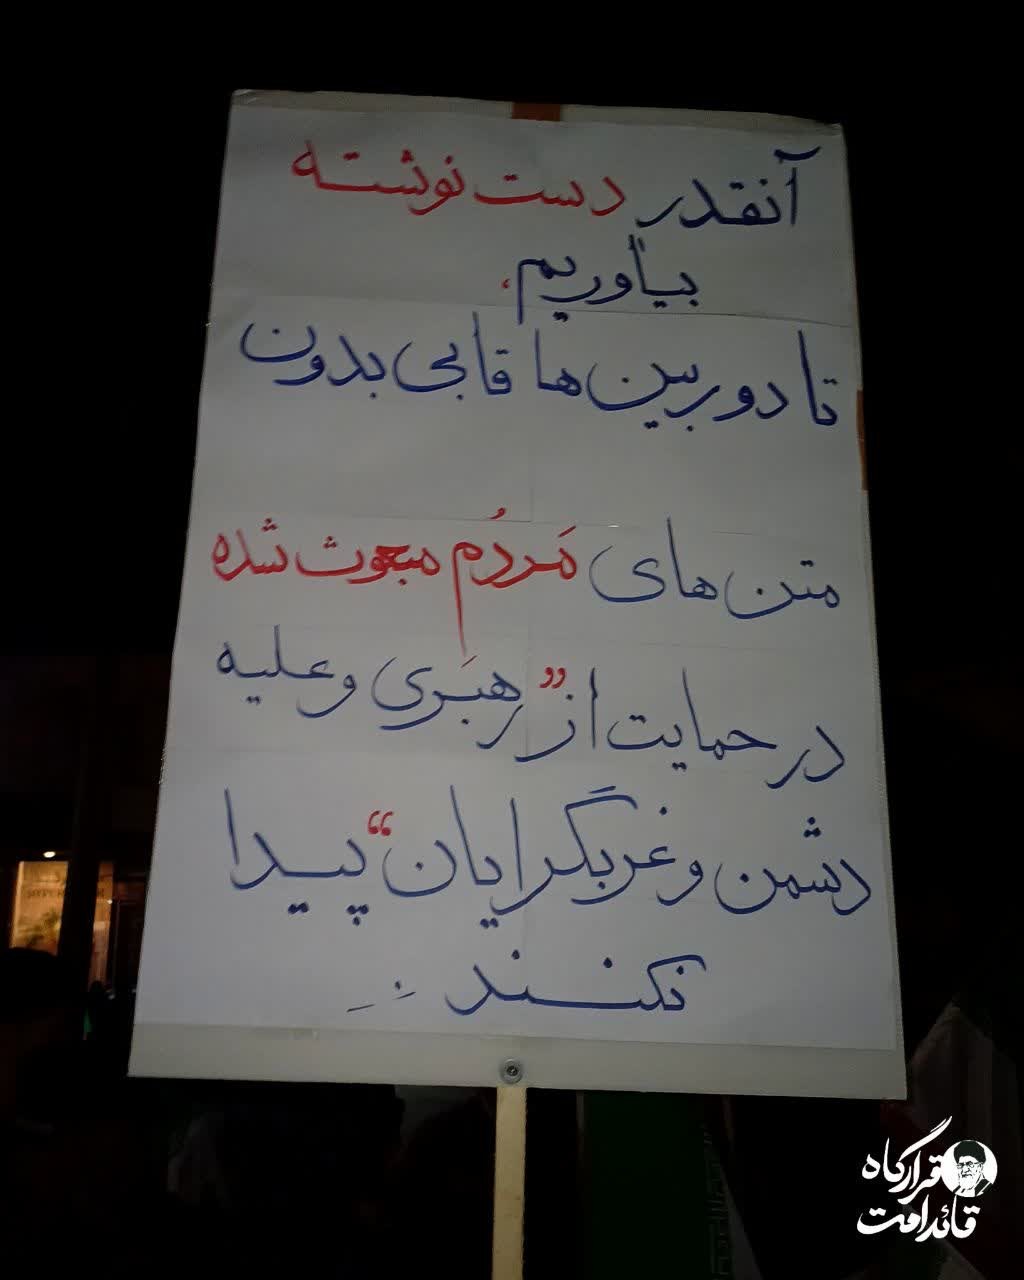 آنقدر دست نوشته
بیاوریم،
تا دوربین ها قابی بدون
متن های مَردُم مبعوث شده
در حمایت از "رهبَری و علیه
دشمن و غربگرایان" پیدا
نکنند...
قرارگاه
قائد امت